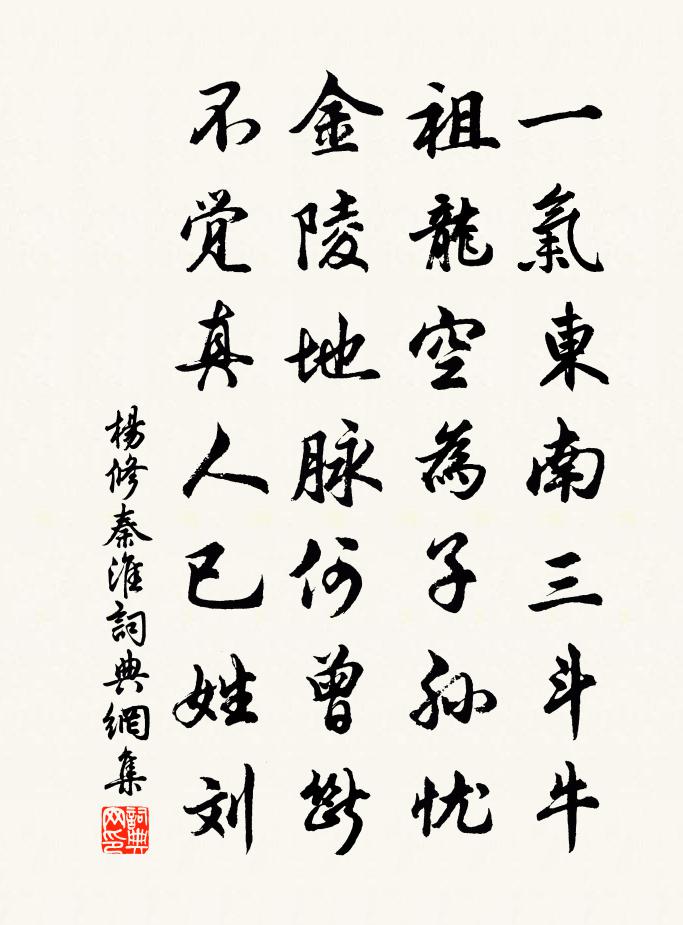 一氣東南三斗牛
祖龍空為子孙忧
金陵地脉何曾断
不觉真人已姓刘
楊修秦淮詞典網集
詞典网印